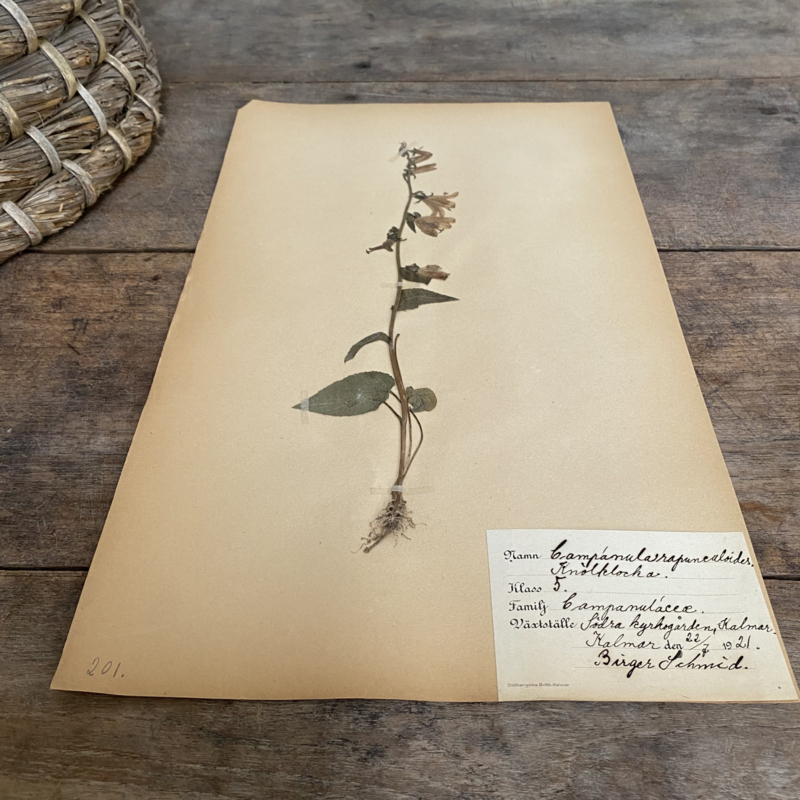 Namn Campánula rapunculoides.
Knölklocka.
Klass 5.
Familj Campanuláceæ.
Växtställe Södra kyrkogården, Kalmar.
Kalmar den 22/7 1921.
Birger Schmid.
201.